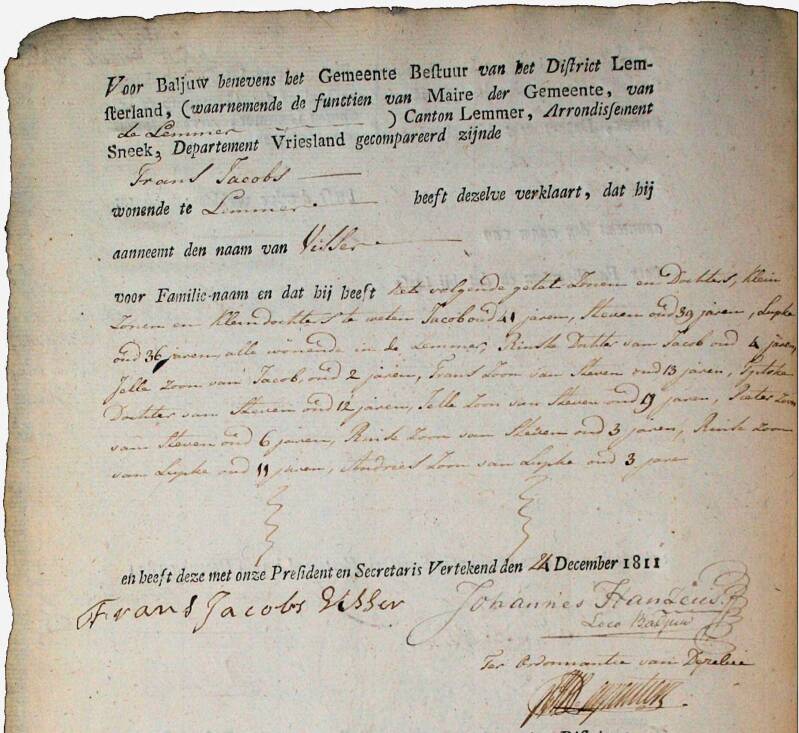 Voor Baljuw benevens het Gemeente Bestuur van het District Lem-
sterland, (waarnemende de functien van Maire der Gemeente, van
de Lemmer ) Canton Lemmer, Arrondissement
Sneek, Departement Vriesland gecompareerd zijnde
Frans Jacobs
wonende te Lemmer heeft dezelve verklaart, dat hij
aanneemt den naam van Visser
voor Familie-naam en dat hij heeft het volgende getal Zonen en Dochters, klein
Zonen en kleindochters te weten Jacob oud 41 jaren, Steven oud 39 jaren, Lupke
oud 36 jaren, alle wonende in de Lemmer, Rinske Dochter van Jacob oud 4 jaren,
Jelle Zoon van Jacob, oud 2 jaren, Frans Zoon van Steven oud 13 jaren,
Dochter van Steven oud 12 jaren, Jelle Zoon van Steven oud 19 jaren, Pieter Zoon
van Steven oud 6 jaren, Rinse Zoon van Steven oud 3 jaren, Rinse Zoon
van Lupke oud 11 jaren, Andries Zoon van Lupke oud 3 jare
en heeft deze met onze President en Secretaris Vertekend den December 1811
Frans Jacobs Visser Johannes
Loco Baljuw
Ter Ordonnantie van Dezelve